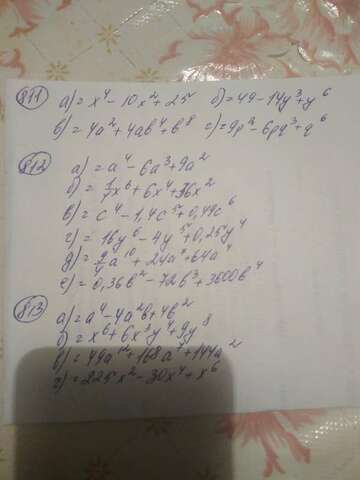 811 а) = x⁴ - 10x² + 25 б) = 49 - 14y³ + y⁶
в) = 4a² + 4ab⁴ + b⁸ г) = 9p² - 6pq³ + q⁶
812 а) = a⁴ - 6a³ + 9a²
б) = 1/4x⁶ + 6x⁴ + 36x²
в) = c⁴ - 1,4c⁵ + 0,49c⁶
г) = 16y⁶ - 4y⁵ + 0,25y⁴
д) = 9/4a¹⁰ + 24a⁷ + 64a⁴
е) = 0,36b² - 72b³ + 3600b⁴
813 а) = a⁴ - 4a²b + 4b²
б) = x⁶ + 6x³y⁴ + 9y⁸
в) = 49a¹² + 168a⁷ + 144a²
г) = 225x² - 30x⁴ + x⁶